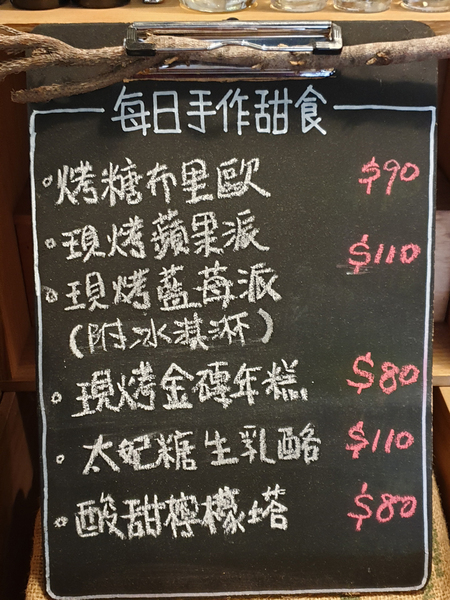 每日手作甜食
烤糖布里歐 $90
現烤蘋果派 $110
現烤藍莓派
(附冰淇淋)
現烤金磚年糕 $80
太妃糖生乳酪 $110
酸甜檸檬塔 $80